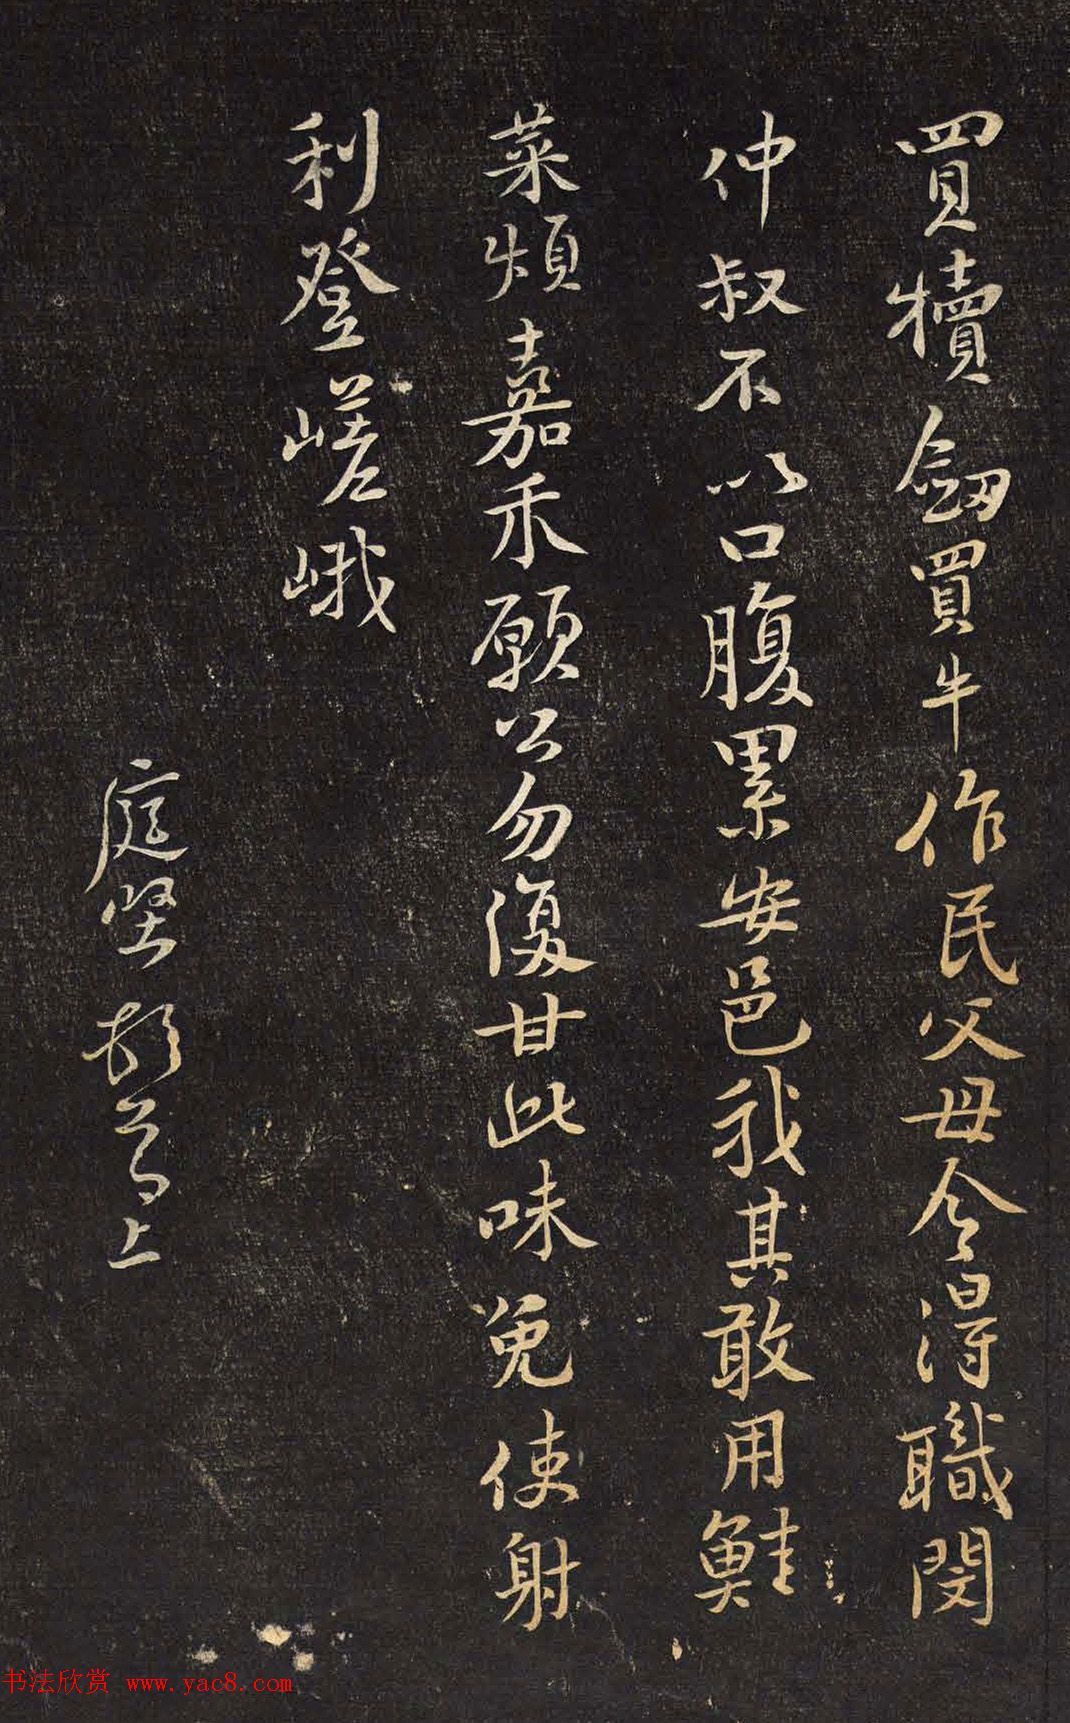 買犢劒買牛作民父母今得職閔
仲叔不以口腹累安邑我其敢用鮭
菜煩嘉禾願公勿復甘此味免使射
利登嵯峨
庭堅頓首上
书法欣赏 www.yac8.com